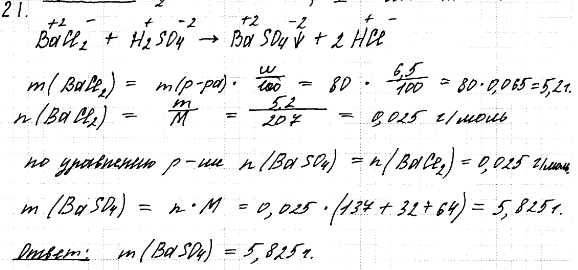 21.
+2 - + -2 +2 -2 + -
BaCl₂ + H₂SO₄ → BaSO₄↓ + 2 HCl
m(BaCl₂) = m(р-ра) · w/100 = 80 · 6,5/100 = 80·0,065 = 5,2г.
n(BaCl₂) = m/M = 5,2/207 = 0,025 г/моль
по уравнению р-ии n(BaSO₄) = n(BaCl₂) = 0,025 г/моль
m(BaSO₄) = n·M = 0,025·(137+32+64) = 5,825г.
Ответ: m(BaSO₄) = 5,825г.